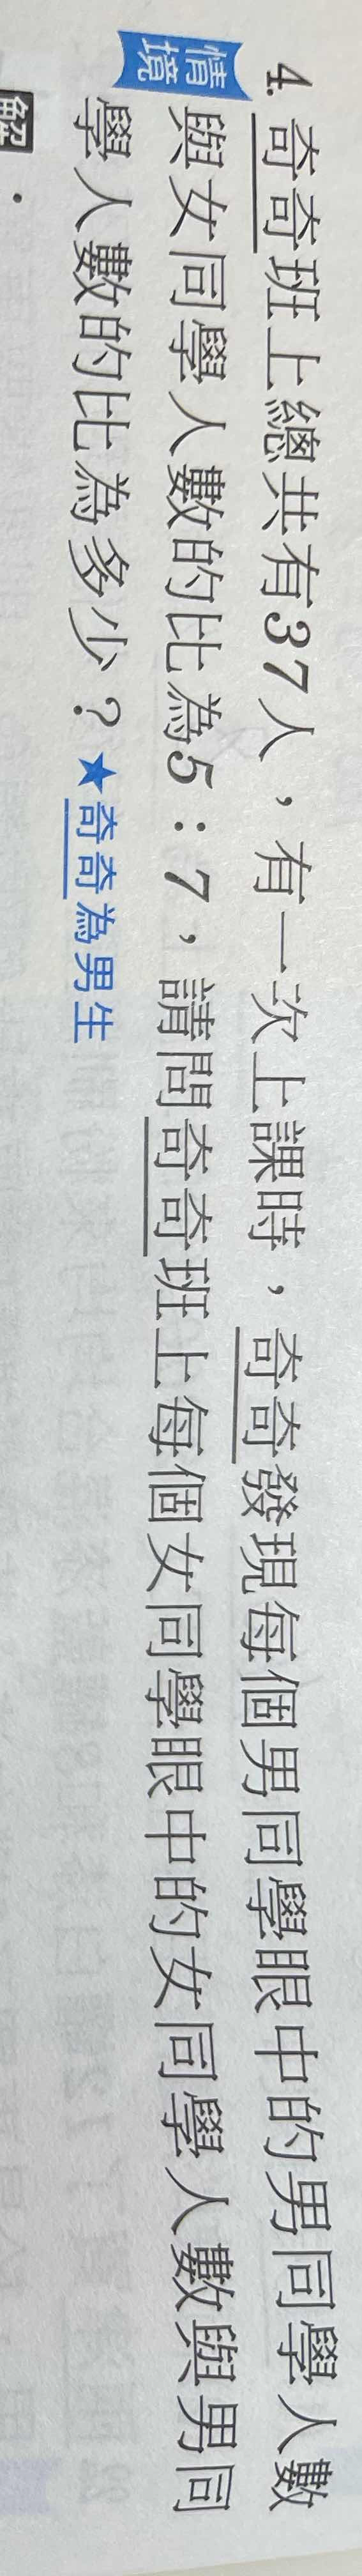 4. 奇奇班上總共有37人，有一次上課時，奇奇發現每個男同學眼中的男同學人數
情境 與女同學人數的比為5：7，請問奇奇班上每個女同學眼中的女同學人數與男同
學人數的比為多少？★奇奇為男生
解